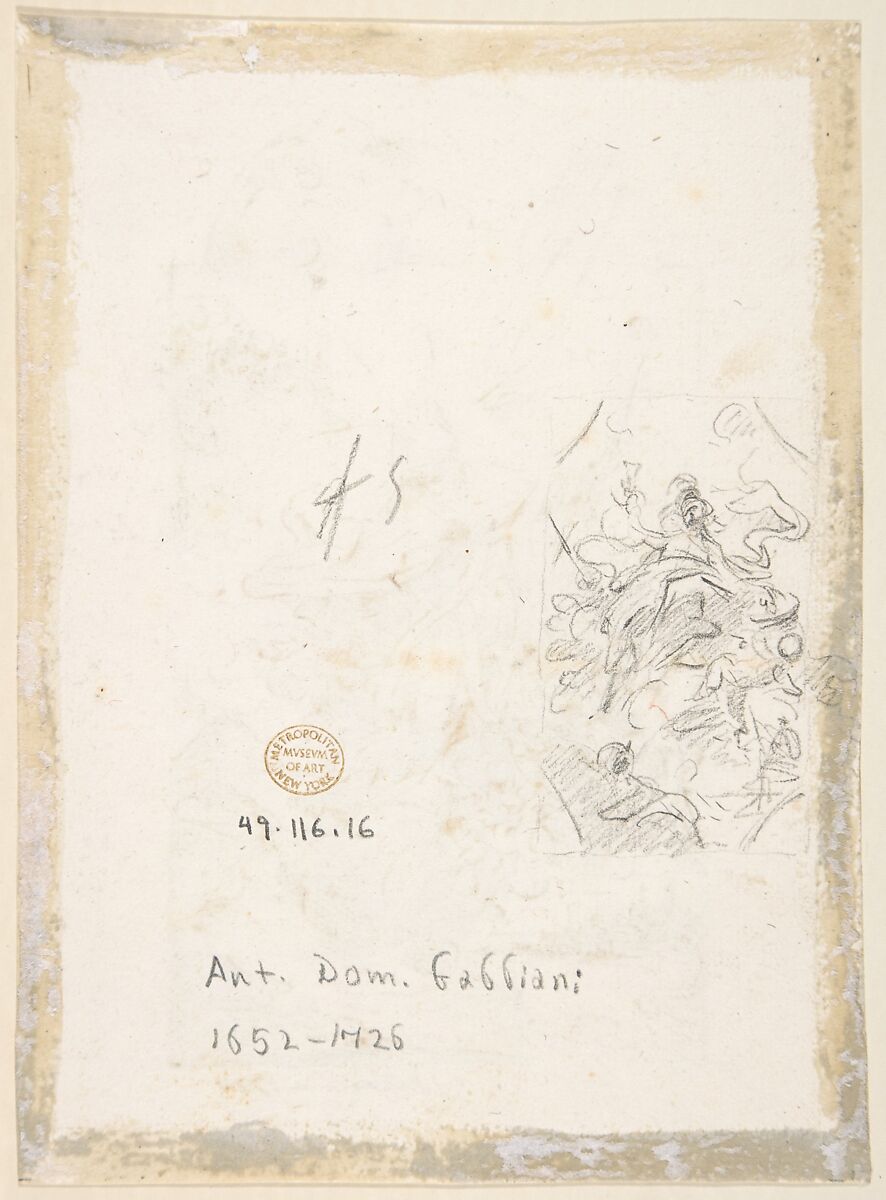 METROPOLITAN
MVSEVM
OF ART
NEW YORK
49.116.16
Ant. Dom. Gabbiani
1652-1726